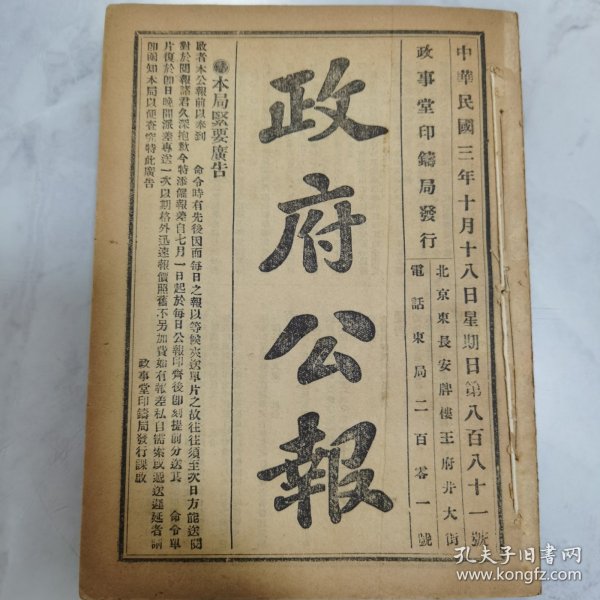 中華民國三年十月十八日星期日第八百八十一號
政事堂印鑄局發行
北京東長安牌樓王府井大街
電話東局二百零一號
政府公報
本局緊要廣告
敬者本公報前以奉到 命令時有先後因而每日之報以等候夾送單片之故往往須至次日方能送閱
對於閱報諸君久深抱歉今特添僱報差自七月一日起於每日公報印齊後即刻提前分送其 命令單
片復於即日晚間派差專送一次以期格外迅速報價照舊不另加費如有報差私自需索或遞送遲延者請
即函知本局以便查究特此廣告
政事堂印鑄局發行課啟
孔夫子旧书网
www.kongfz.com